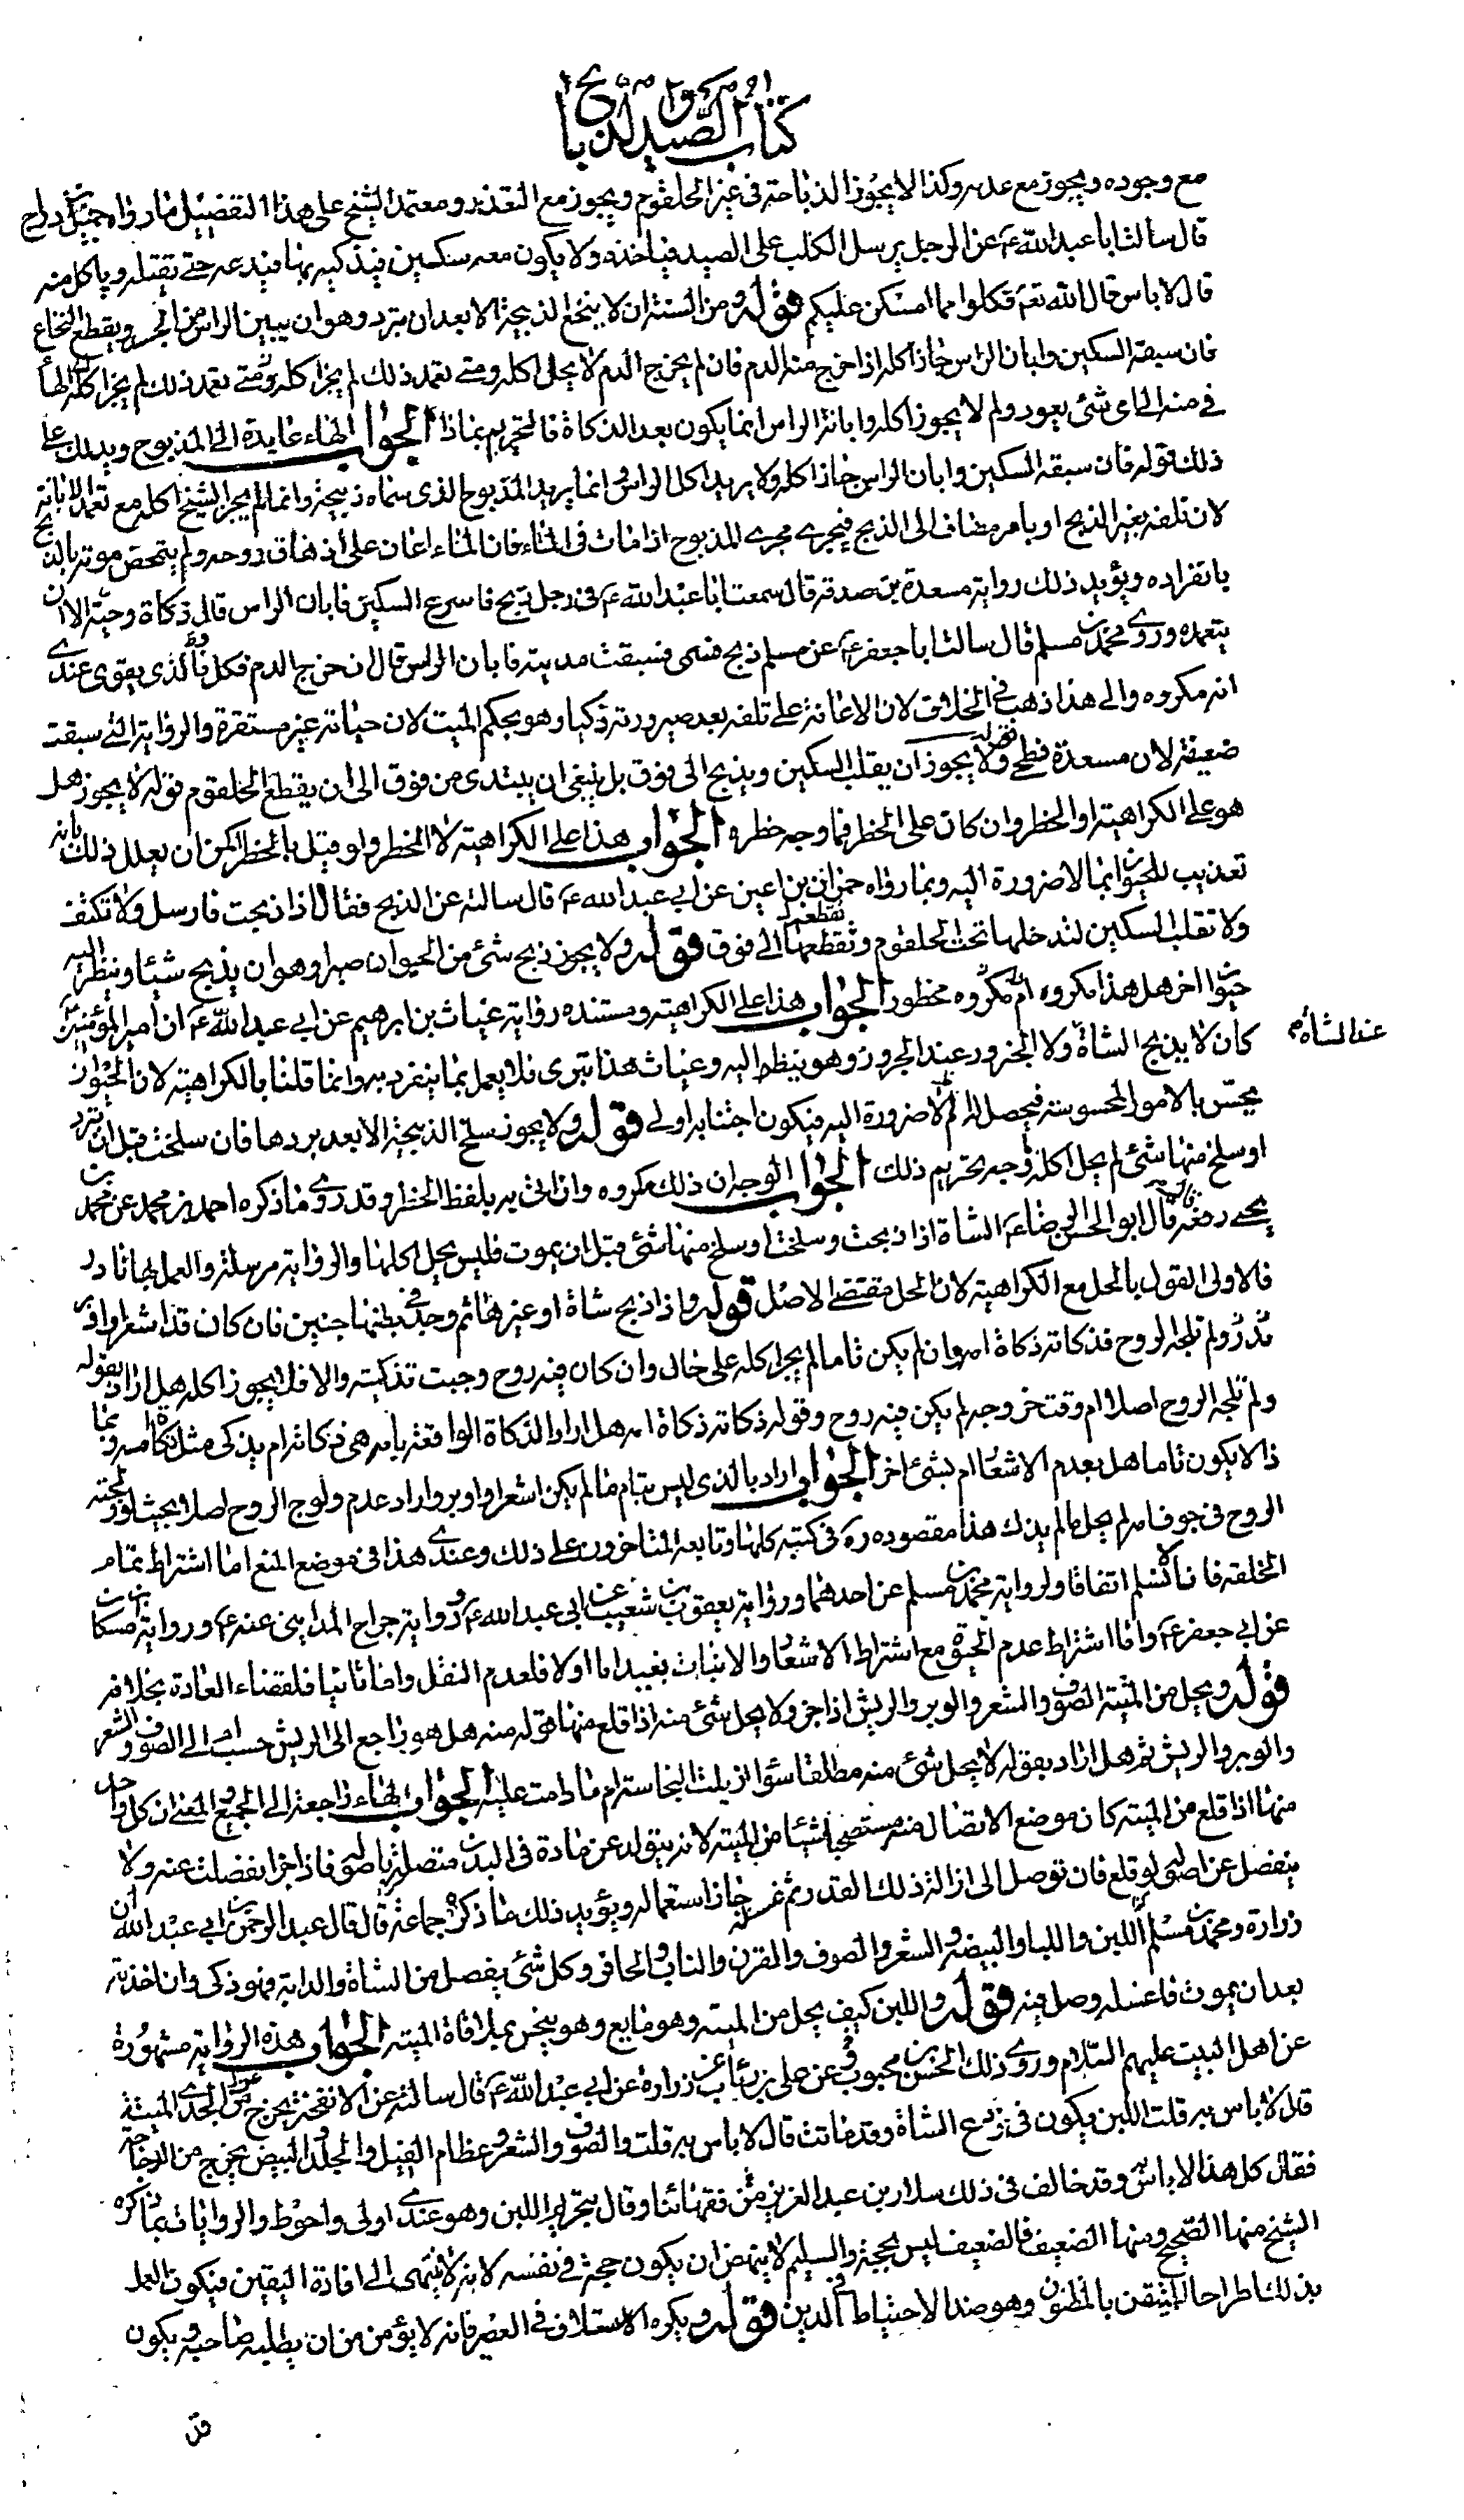 كتاب الصيد والذبايح
مع وجوده ويجوز مع عدمه وكذا لا يجوز الذباحة في غير الحلقوم ويجوز مع التعذر ومعتمد الشيخ على هذا التفصيل ما رواه جميل بن دراج
قال سالت ابا عبد الله ع عن الرجل يرسل الكلب على الصيد فياخذه ولا يكون معه سكين فيذكيه بها فيدعه حتى يقتله وياكل منه
قال لا باس قال الله تعم فكلوا مما امسكن عليكم قوله ومن السنة ان لا ينخع الذبيحة الا بعد ان تبرد وهو ان يبين الراس من الجسد ويقطع النخاع
فان سبقه السكين وابان الراس جاز اكله اذا خرج منه الدم فان لم يخرج الدم لا يحل اكله ومتى تعمد ذلك لم يجز اكله ومتى تعمد ذلك لم يجز اكله الهاء
في منه الى اي شئ يعود ولم لا يجوز اكله وابانة الراس انما يكون بعد الذكاة فالتحريم بماذا الجواب الهاء عايدة الى المذبوح ويدلك على
ذلك قوله فان سبقه السكين وابان الراس جاز اكله ولا يريد اكل الراس وانما يريد المذبوح الذي سماه ذبيحة وانما لم يجز الشيخ اكله مع تعمد الابانة
لان تلفه بغير الذبح او بامر مضاف الى الذبح فيجري مجرى المذبوح اذا مات في الماء فان الماء اعان على اذهاق روحه ولم يتمحض موته بالذبح
بانفراده ويؤيد ذلك رواية مسعدة بن صدقة قال سمعت ابا عبد الله ع في رجل ذبح فاسرع السكين فابان الراس قال ذكاة وحية الا ان
يتعمده وروى محمد بن مسلم قال سالت ابا جعفر ع عن مسلم ذبح فسمى فسبقت مديته فابان الراس قال ان خرج الدم فكل والذي يقوى عندي
انه مكروه والى هذا ذهب في الخلاف لان الاعانة على تلفه بعد صيرورته ذكيا وهو بحكم الميت لان حياته غير مستقرة والرواية التي سبقت
ضعيفة لان مسعدة فطحي قوله ولا يجوز ان يقلب السكين ويذبح الى فوق بل ينبغي ان يبتدى من فوق الى ان يقطع الحلقوم قوله لا يجوز هل
هو على الكراهية او الحظر وان كان على الحظر فما وجه حظره الجواب هذا على الكراهية لا الحظر ولو قيل بالحظر امكن ان يعلل ذلك بانه
تعذيب للحيوان بما لا ضرورة اليه وبما رواه حمران بن اعين عن ابي عبد الله ع قال سالته عن الذبح فقال اذا ذبحت فارسل ولا تكتف
ولا تقلب السكين لتدخلها تحت الحلقوم وتقطعها الى فوق قوله ولا يجوز ذبح شئ من الحيوان صبرا وهو ان يذبح شيئا وينظر اليه
حيوان اخر هل هذا مكروه ام مكروه محظور الجواب هذا على الكراهية ومستنده رواية غياث بن ابرهيم عن ابي عبد الله ع ان امير المؤمنين
كان لا يذبح الشاة ولا الجزور عند الجزور وهو ينظر اليه وغياث هذا بترى فلا يعمل بما ينفرد به وانما قلنا بالكراهية لان الحيوان
عند الشاة م
يحس بالامور المحسوسة فيحصل له الم لا ضرورة اليه فيكون اجتنابه اولى قوله ولا يجوز سلخ الذبيحة الا بعد بردها فان سلخت قبل ان تبرد
او سلخ منها شئ لم يحل اكله ما وجه تحريم ذلك الجواب الوجه ان ذلك مكروه وان اتى به بلفظ الحظر وقد روى ما ذكره احمد بن محمد عن محمد بن
يحيى رفعه قال قال ابو الحسن الرضا ع الشاة اذا ذبحت وسلخت او سلخ منها شئ قبل ان يموت فليس يحل اكلها والرواية مرسلة والعمل بها نادر
فالاولى القول بالحل مع الكراهية لان الحل مقتضى الاصل قوله واذا ذبح شاة او غيرها ثم وجد في بطنها جنين فان كان قد اشعر او اوبر
ولم تلجه الروح فذكاته ذكاة امه وان لم يكن تاما لم يجز اكله على حال وان كان فيه روح وجبت تذكيته والا فلا يجوز اكله هل اراد بقوله
ولم تلجه الروح اصلا ام وقت خروجه لم يكن فيه روح وقوله ذكاته ذكاة امه هل اراد الذكاة الواقعة بامه هي ذكاته ام يذكى مثل ذكاة امه وبما
ذا لا يكون تاما هل بعدم الاشعار ام بشئ اخر الجواب اراد بالذي ليس بتام ما لم يكن اشعر او اوبر واراد عدم ولوج الروح اصلا بحيث لو ولجته
الروح في جوف امه لم يحل ما لم يذك هذا مقصوده ره في كتبه كلها وتابعه المتاخرون على ذلك وعندي هذا في موضع المنع اما اشتراط تمام
الخلقة فانا نسلم اتفاقا ولرواية محمد بن مسلم عن احدهما ورواية يعقوب بن شعيب عن ابي عبد الله ع ورواية جراح المدايني عنه ع ورواية ابن مسكان
عن ابي جعفر ع واما اشتراط عدم الحيوة مع اشتراط الاشعار والانبات بعيد اما اولا فلعدم النقل واما ثانيا فلقضاء العادة بخلافه
قوله ويحل من الميتة الصوف والشعر والوبر والريش اذا جز ولا يحل شئ منه اذا قلع منها قوله منه هل هو راجع الى الريش حسب ام الى الصوف والشعر
والوبر والريش ثم هل اراد بقوله لا يحل شئ منه مطلقا سواء ازيلت النجاسة ام ما دامت عليه الجواب الهاء راجعة الى الجميع والمعنى ان كل واحد
منها اذا قلع من الميتة كان موضع الاتصال منه مستصحبا شيئا من الميتة لانه يتولد عن مادة في البدن متصلة باصوله فاذا جز انفصلت عنه ولا
ينفصل عن اصوله لو قلع فان توصل الى ازالة ذلك القدر ثم غسله جاز استعماله ويؤيد ذلك ما ذكره جماعة قال قال عبد الرحمن بن ابي عبد الله ان
زرارة ومحمد بن مسلم اللبن واللبا والبيضة والشعر والصوف والقرن والناب والحافر وكل شئ يفصل من الشاة والدابة فهو ذكي وان اخذته
بعد ان يموت فاغسله وصل فيه قوله واللبن كيف يحل من الميتة وهو مايع وهو ينجس بملاقاة الميتة الجواب هذه الرواية مشهورة
عن اهل البيت عليهم السلام وروى ذلك الحسن بن محبوب عن علي بن رئاب عن زرارة عن ابي عبد الله ع قال سالته عن الانفحة تخرج من الجدى الميتة
قال لا باس به قلت اللبن يكون في ضرع الشاة وقد ماتت قال لا باس به قلت والصوف والشعر وعظام الفيل والجلد والبيض يخرج من الدجاجة
فقال كل هذا لا باس به وقد خالف في ذلك سلار بن عبد العزيز من فقهائنا وقال بتحريم اللبن وهو عندي اولى واحوط والروايات بما ذكره
الشيخ منها الصحيح ومنها الضعيف فالضعيف ليس بحجة والسليم لا ينهض ان يكون حجة في نفسه لانه لا ينتهى الى افادة اليقين فيكون العمل
بذلك اطراحا للمتيقن بالمظنون وهو ضد الاحتياط في الدين قوله ويكره الاستسلاف في العصير فانه لا يؤمن من ان يطلبه صاحبه ويكون
قد